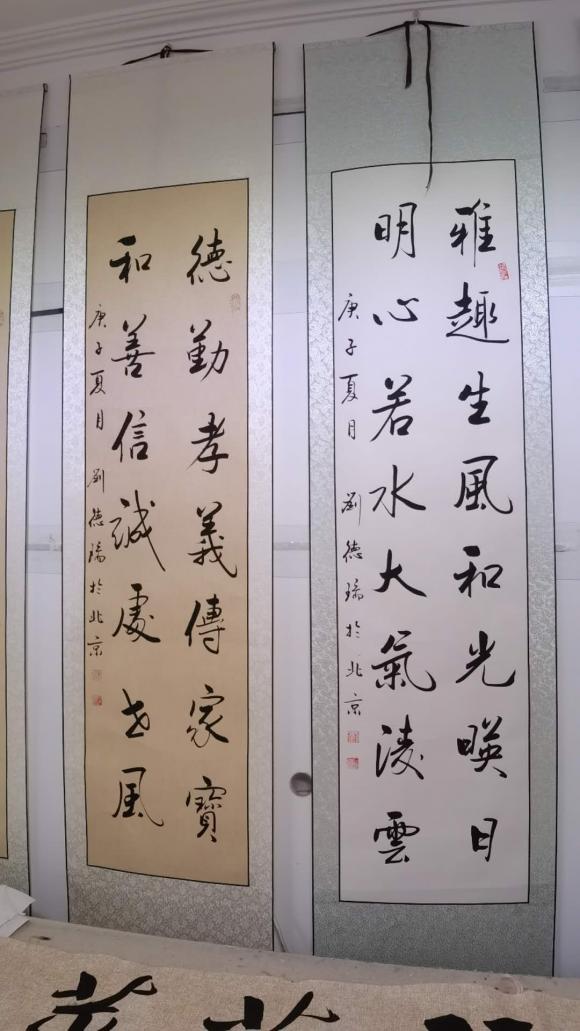 雅趣生風和光暎日
明心若水大氣淩雲
庚子夏月 劉德瑞於北京
德勤孝義傳家寶
和善信誠處世風
庚子夏月 劉德瑞於北京